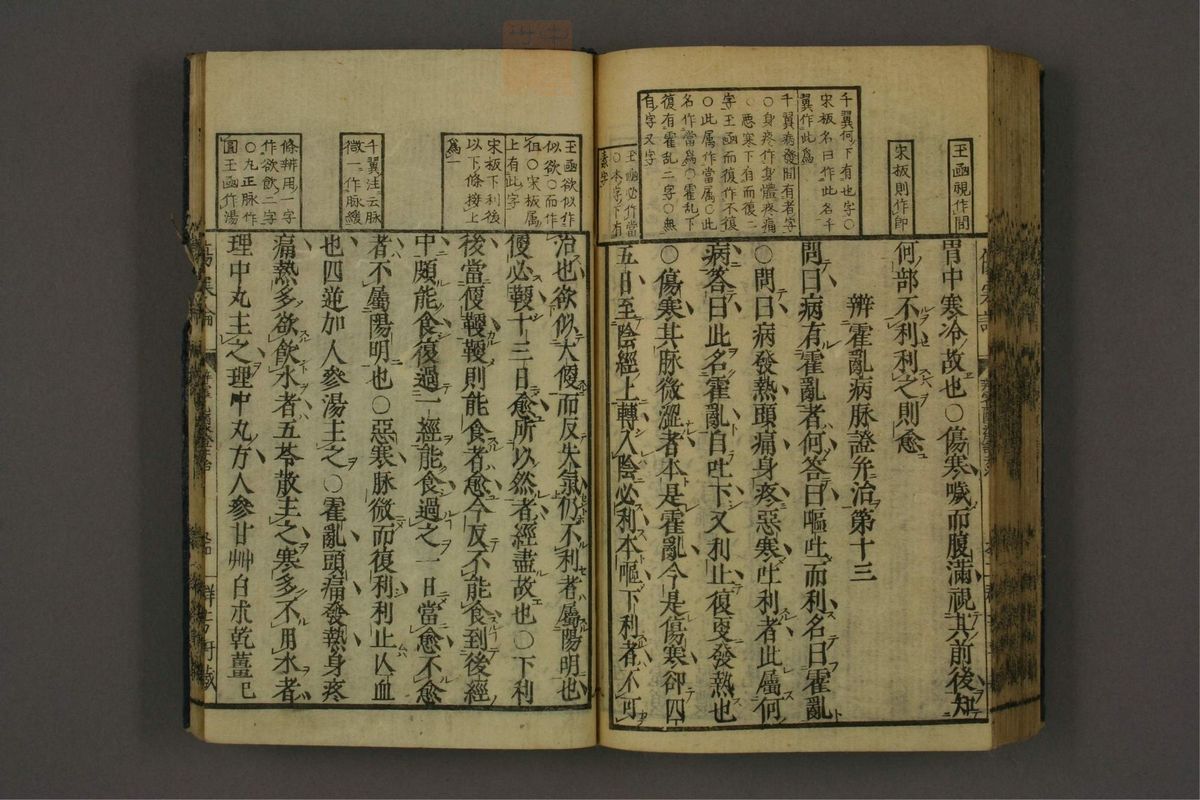 玉函視作間
宋板則作即
千翼何下有也字○
宋板名曰作此名千
翼作此為
千翼病發間有者字
○身疼作身體疼痛
○惡寒下有而復二
字玉函而復作不復
○此属作當属○此
名作當為○霍乱下
復有霍乱二字○無
自字又字
玉函必作當
○本字下有
素字
胃中寒冷故也○傷寒噦而腹滿視其前後知
何部不利利之則愈
辨霍亂病脉證并治第十三
問曰病有霍亂者何答曰嘔吐而利名曰霍亂
○問曰病發熱頭痛身疼惡寒吐利者此屬何
病答曰此名霍亂自吐下又利止復更發熱也
○傷寒其脉微澀者本是霍亂今是傷寒卻四
五日至陰經上轉入陰必利本嘔下利者不可
玉函欲似作
似欲○而作
但○宋板属
上有此字
宋板下利後
以下條接上
為一
千翼注云脉
微一作脉緩
條辨用一字
作欲飲二字
○丸正脉作
圓玉函作湯
治也欲似大便而反失氣仍不利者屬陽明也
便必鞕十三日愈所以然者經盡故也○下利
後當便鞕鞕則能食者愈今反不能食到後經
中頗能食復過一經能食過之一日當愈不愈
者不屬陽明也○惡寒脉微而復利利止亾血
也四逆加人參湯主之○霍亂頭痛發熱身疼
痛熱多欲飲水者五苓散主之寒多不用水者
理中丸主之理中丸方人參甘艸白朮乾薑已
傷寒論